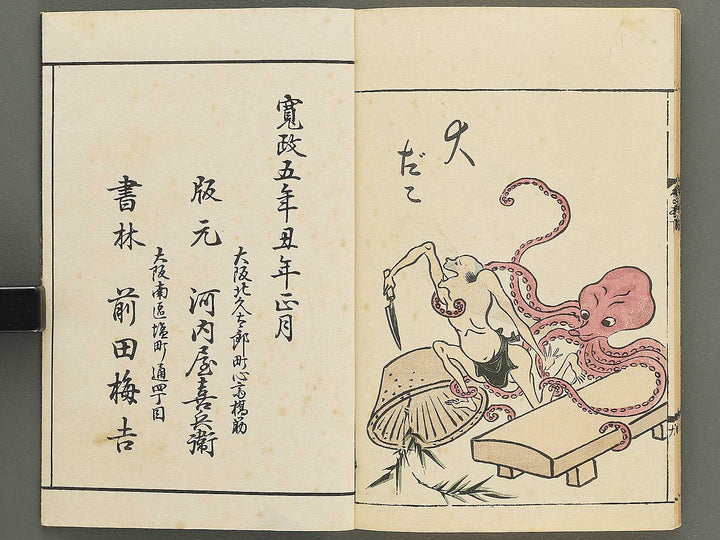 大
だこ
寛政五年丑年正月
大阪北久太郎町心斎橋筋
版元 河内屋喜兵衛
大阪南區塩町通四丁目
書林 前田梅吉